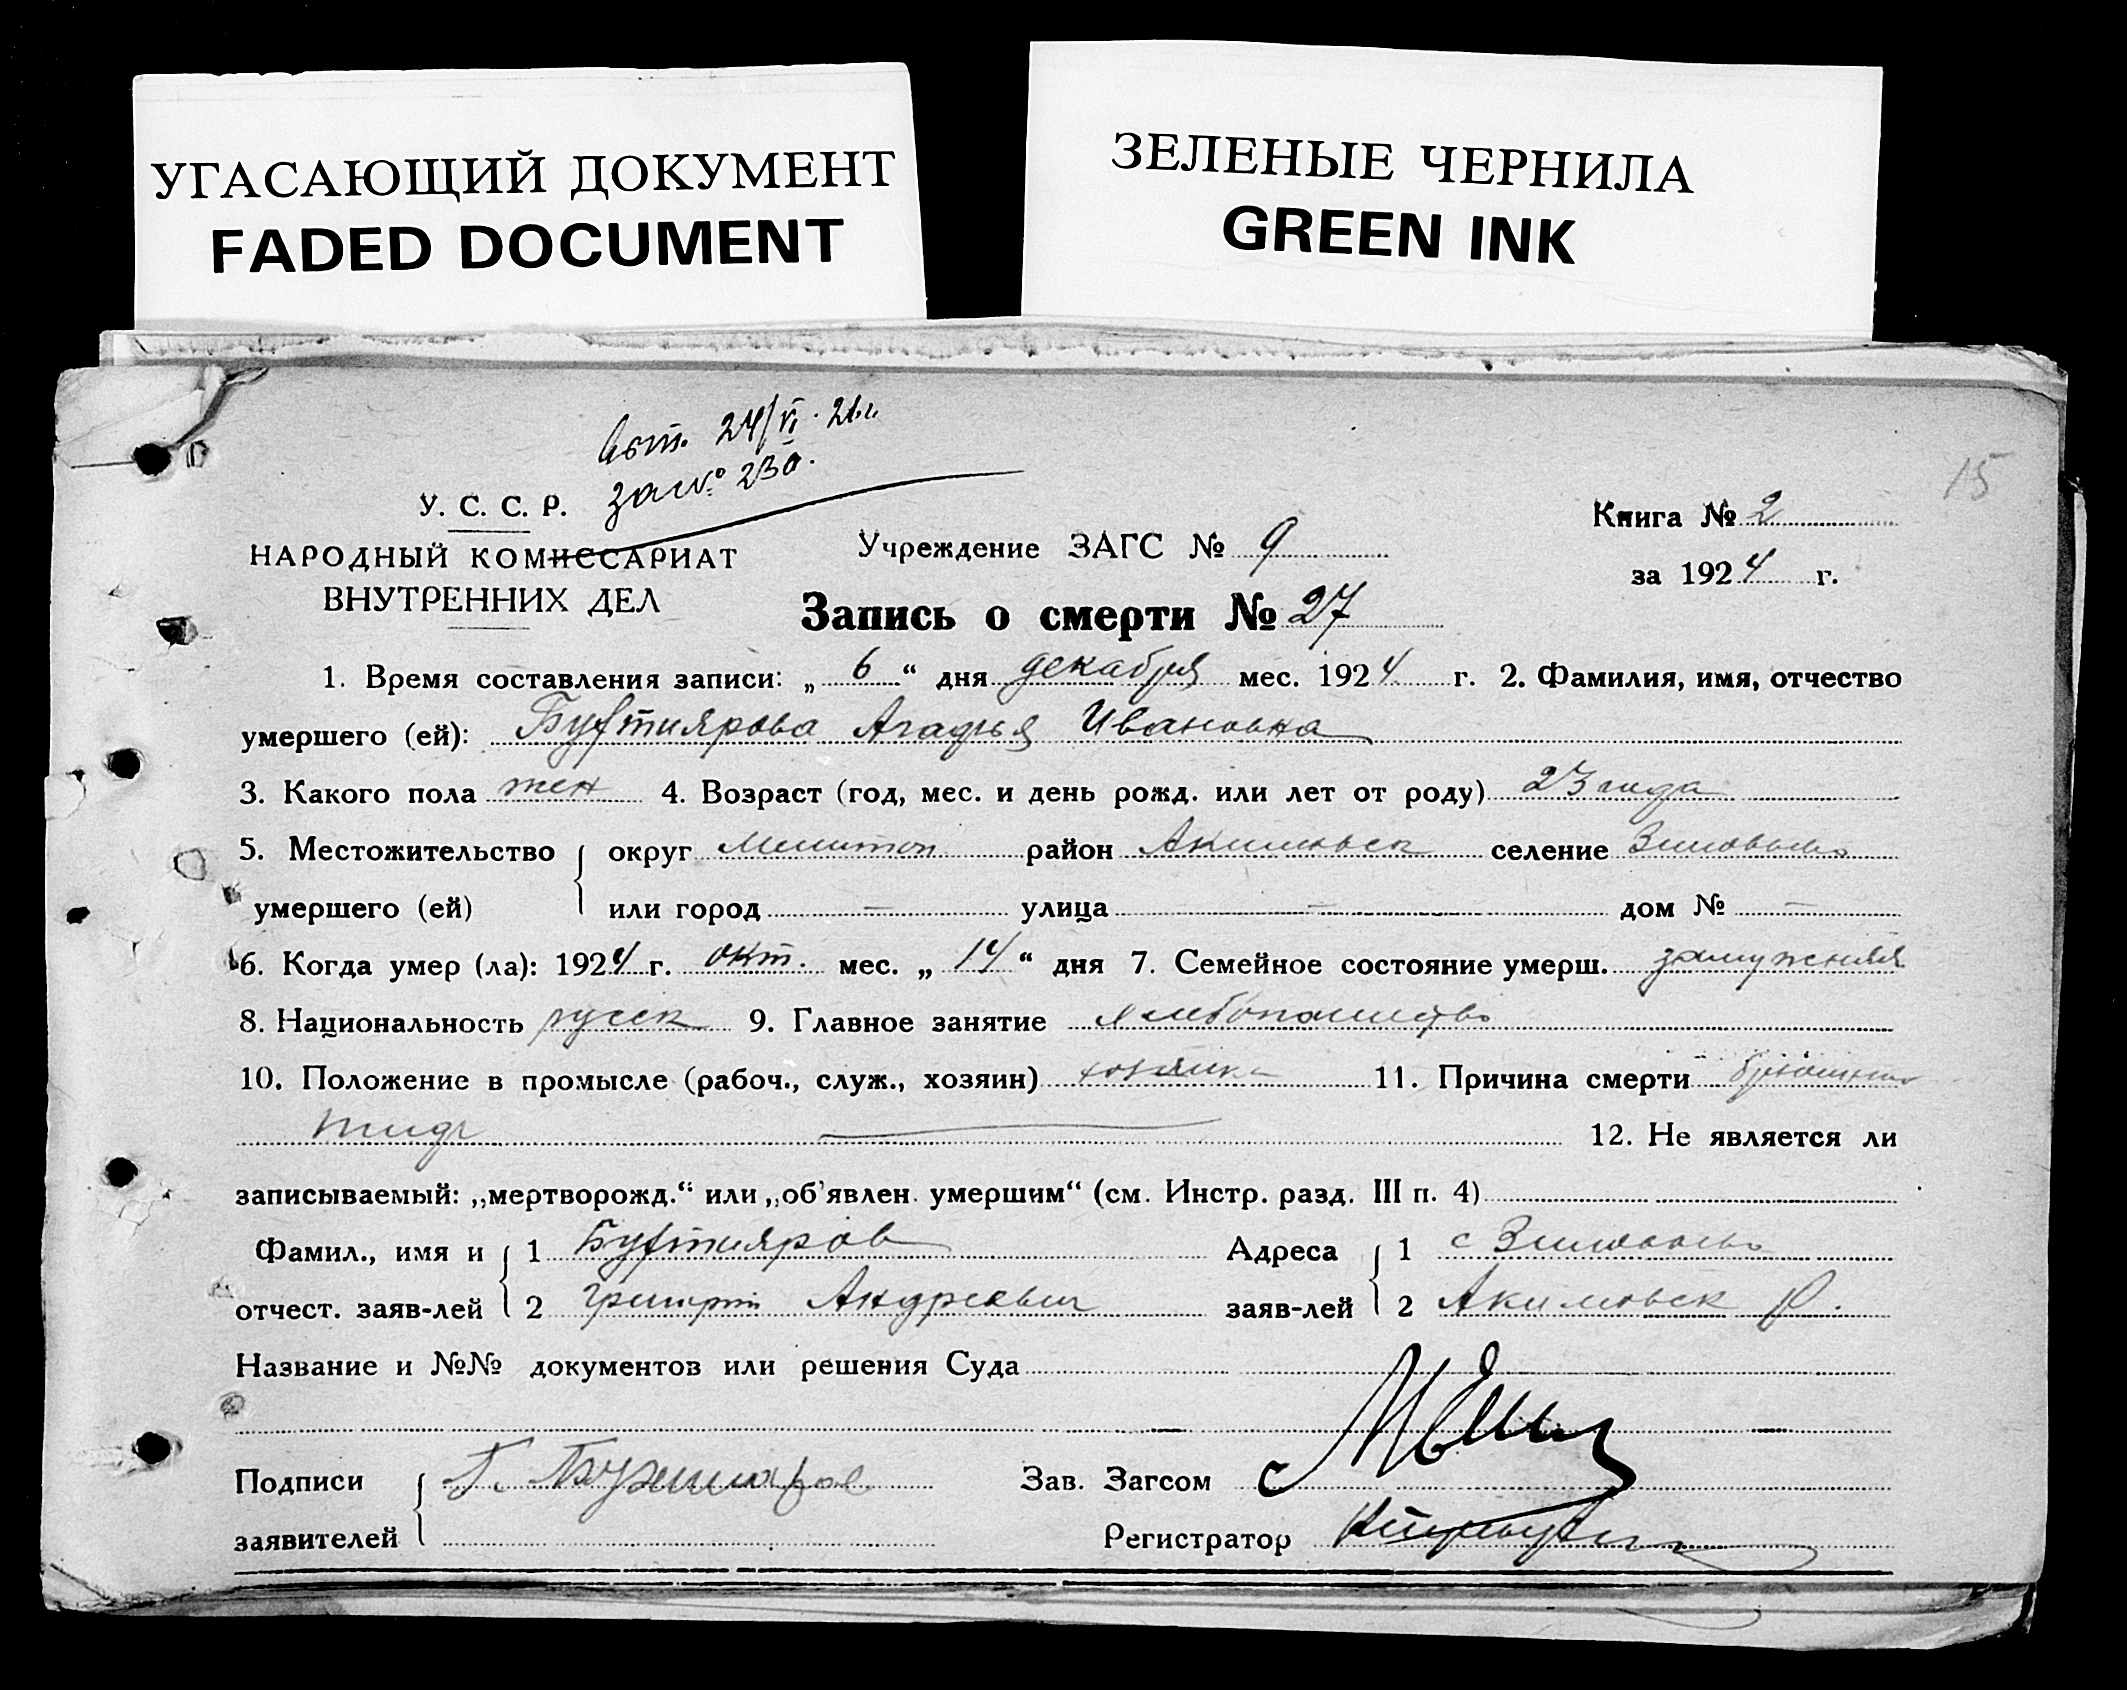 УГАСАЮЩИЙ ДОКУМЕНТ
FADED DOCUMENT
ЗЕЛЕНЫЕ ЧЕРНИЛА
GREEN INK
24/VI. 26 г.
за № 230.
15
У. С. С. Р.
НАРОДНЫЙ КОМИССАРИАТ
ВНУТРЕННИХ ДЕЛ
Учреждение ЗАГС № 9
Книга № 2
за 1924 г.
Запись о смерти № 27
1. Время составления записи: „ 6 “ дня декабря мес. 1924 г. 2. Фамилия, имя, отчество
умершего (ей): Буфтиярова Агафья Ивановна
3. Какого пола жен 4. Возраст (год, мес. и день рожд. или лет от роду) 23 года
5. Местожительство округ Мелитоп район Акимовск селение
умершего (ей) или город — улица — дом № —
6. Когда умер (ла): 1924 г. окт. мес. „ 14 “ дня 7. Семейное состояние умерш. замужняя
8. Национальность русск 9. Главное занятие хлебопашество
10. Положение в промысле (рабоч., служ., хозяин) хозяйка 11. Причина смерти брюшной
тиф 12. Не является ли
записываемый: „мертворожд.“ или „об'явлен умершим“ (см. Инстр. разд. III п. 4)
Фамил., имя и 1 Буфтияров Адреса 1 с
отчест. заяв-лей 2 Григорий Андреевич заяв-лей 2 Акимовск р.
Название и №№ документов или решения Суда
Подписи Г. Зав. Загсом
заявителей Регистратор